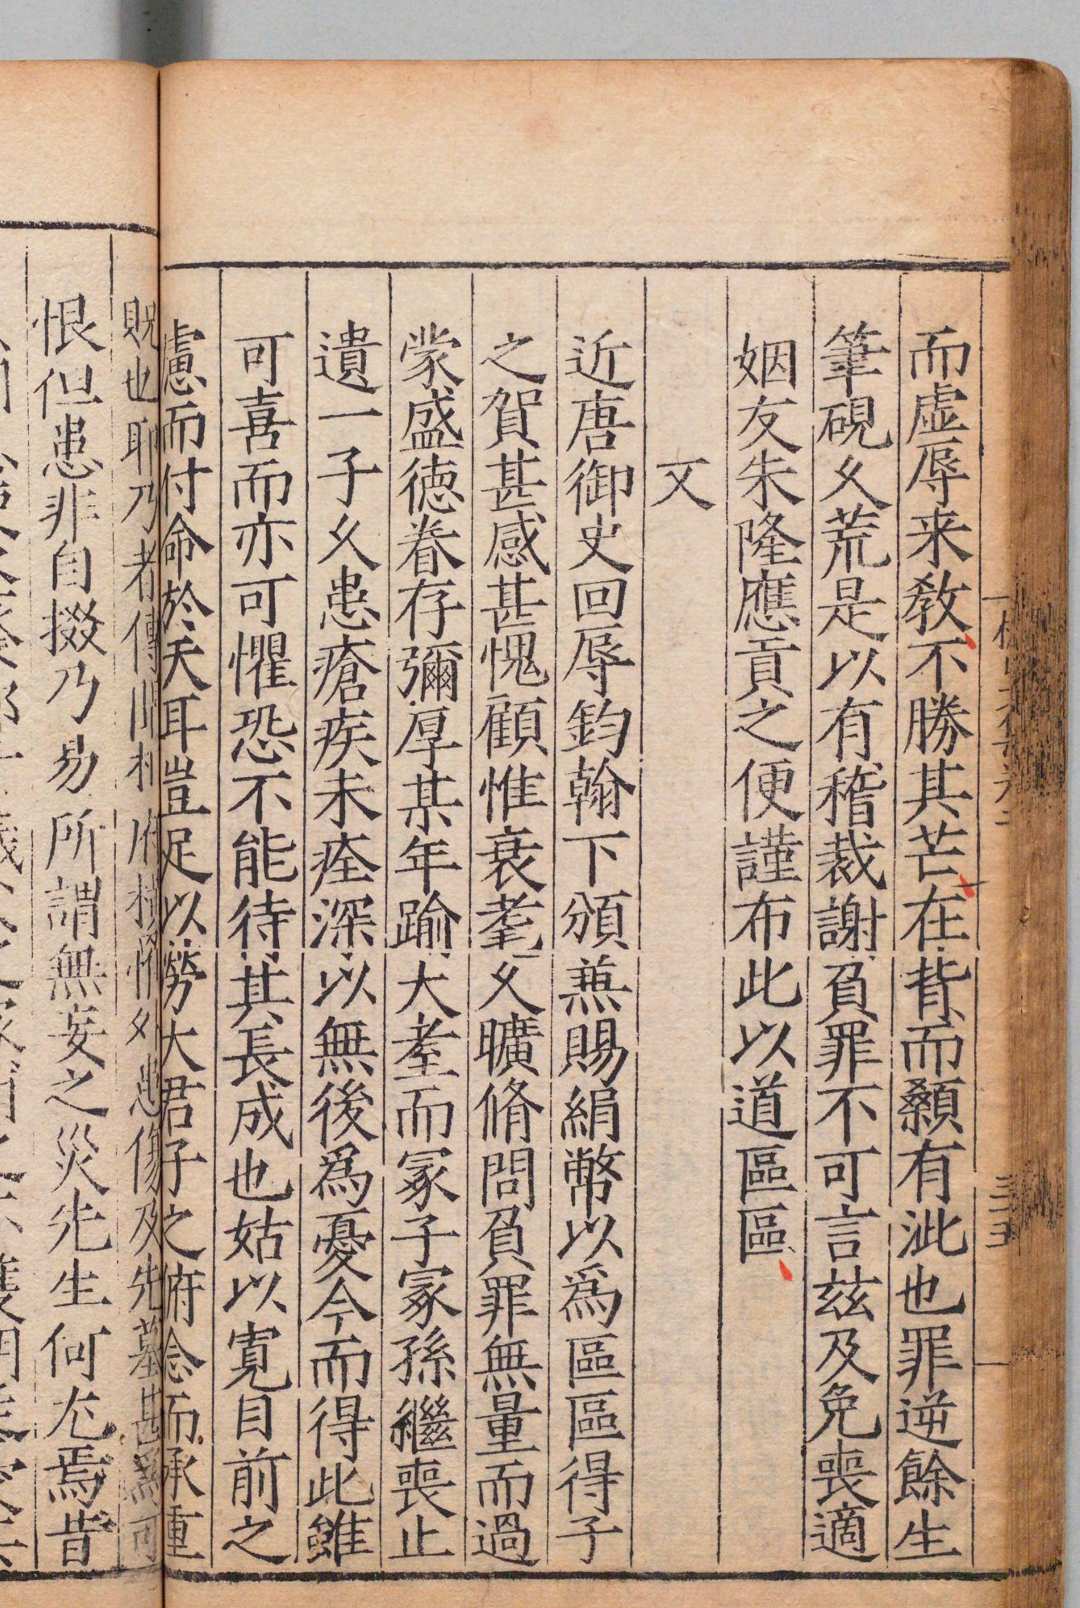 而虚辱来教不勝其芒在背而顙有泚也罪逆餘生
筆硯乆荒是以有稽裁謝負罪不可言茲及免喪適
姻友朱隆應貢之便謹布此以道區區
又
近唐御史回辱鈞翰下頒蕪賜絹幣以為區區得子
之賀甚感甚愧顧惟衰耄乆曠脩問負罪無量而過
蒙盛德眷存彌厚某年踰大耋而冢子冢孫繼喪止
遺一子乆患瘡疾未痊深以無後爲憂今而得此雖
可喜而亦可懼恐不能待其長成也姑以寛目前之
慮而付命於天耳豈足以勞大君子之俯念而承重
貺也耶乃者傳聞
恨但患非自掇乃易所謂無妄之災先生何尤焉昔